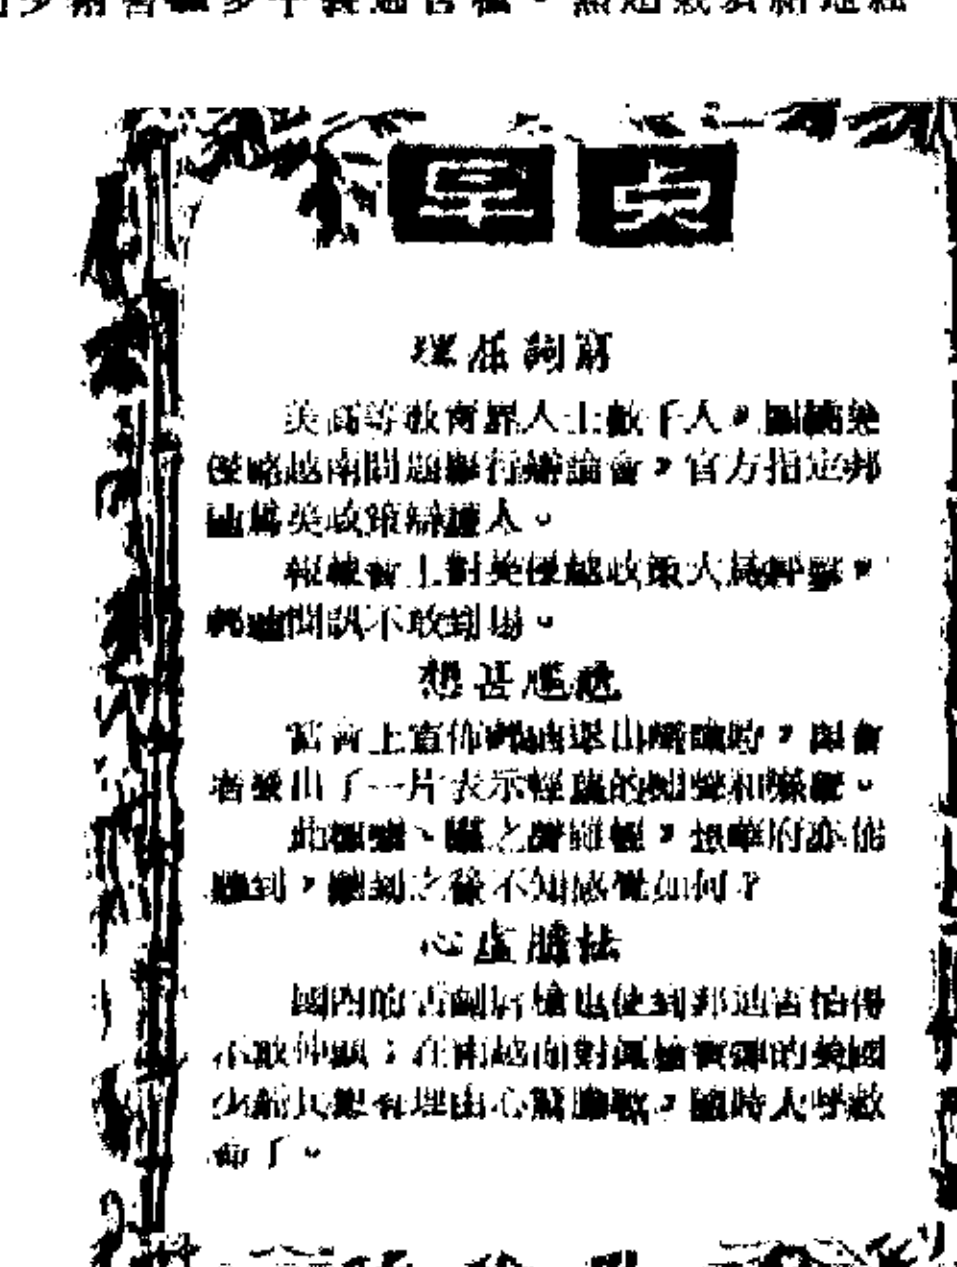 理屈詞窮
美高等教育界人士數千人,圍繞美
侵略越南問題舉行辯論會,官方指定邦
迪爲美政策辯護人。
報載會上對美侵越政策大肆抨擊,
邦迪聞訊不敢到場。
想甚感甚
當會上宣佈邦迪退出辯論時,與會
者發出了一片表示輕蔑的噓聲和嘆聲。
此種噓、嘆之聲雖輕,想華府亦能
聽到,聽到之後不知感覺如何?
心虛膽怯
國內的舌劍唇槍也使到邦迪害怕得
不敢伸頭;在南越面對眞槍實彈的美國
少爺兵更有理由心驚膽戰,隨時大呼救
命了。